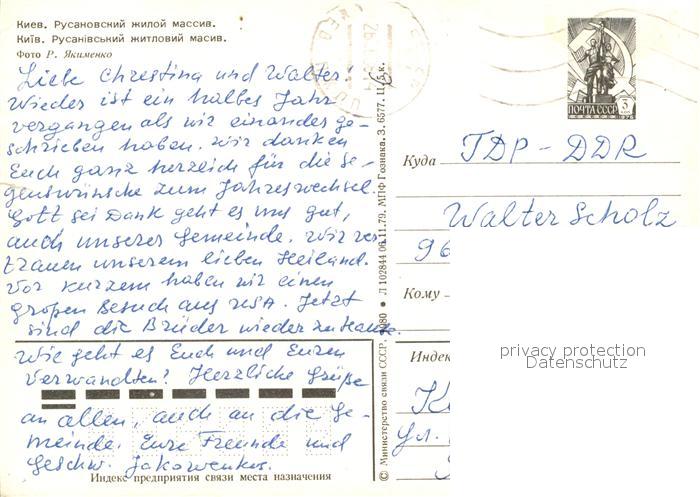 Киев. Русановский жилой массив.
Київ. Русанівський житловий масив.
Фото Р. Якименко
Liebe Christina und Walter!
Wieder ist ein halbes Jahr
vergangen als wir einander ge-
schrieben haben. Wir danken
Euch ganz herzlich für die Se-
genswünsche zum Jahreswechsel.
Gott sei Dank geht es uns gut,
auch unserer Gemeinde. Wir ver-
trauen unserem lieben Heiland.
Vor kurzem haben wir einen
großen Besuch aus USA. Jetzt
sind die Brüder wieder zu Hause.
Wie geht es Euch und Euren
Verwandten? Herzliche Grüße
an allen, auch an die Ge-
meinde. Eure Freunde und
Geschw. Jakowenkos.
Индекс предприятия связи места назначения
© Министерство связи СССР, 1980 • Л 102844 06.11.79. МПФ Гознака. З. 6577. Ц. 4 к.
ПОЧТА СССР 3 КОП
1976
Куда ГДР - DDR
Walter Scholz
96
Кому
Индек
privacy protection
Datenschutz
К
ул.